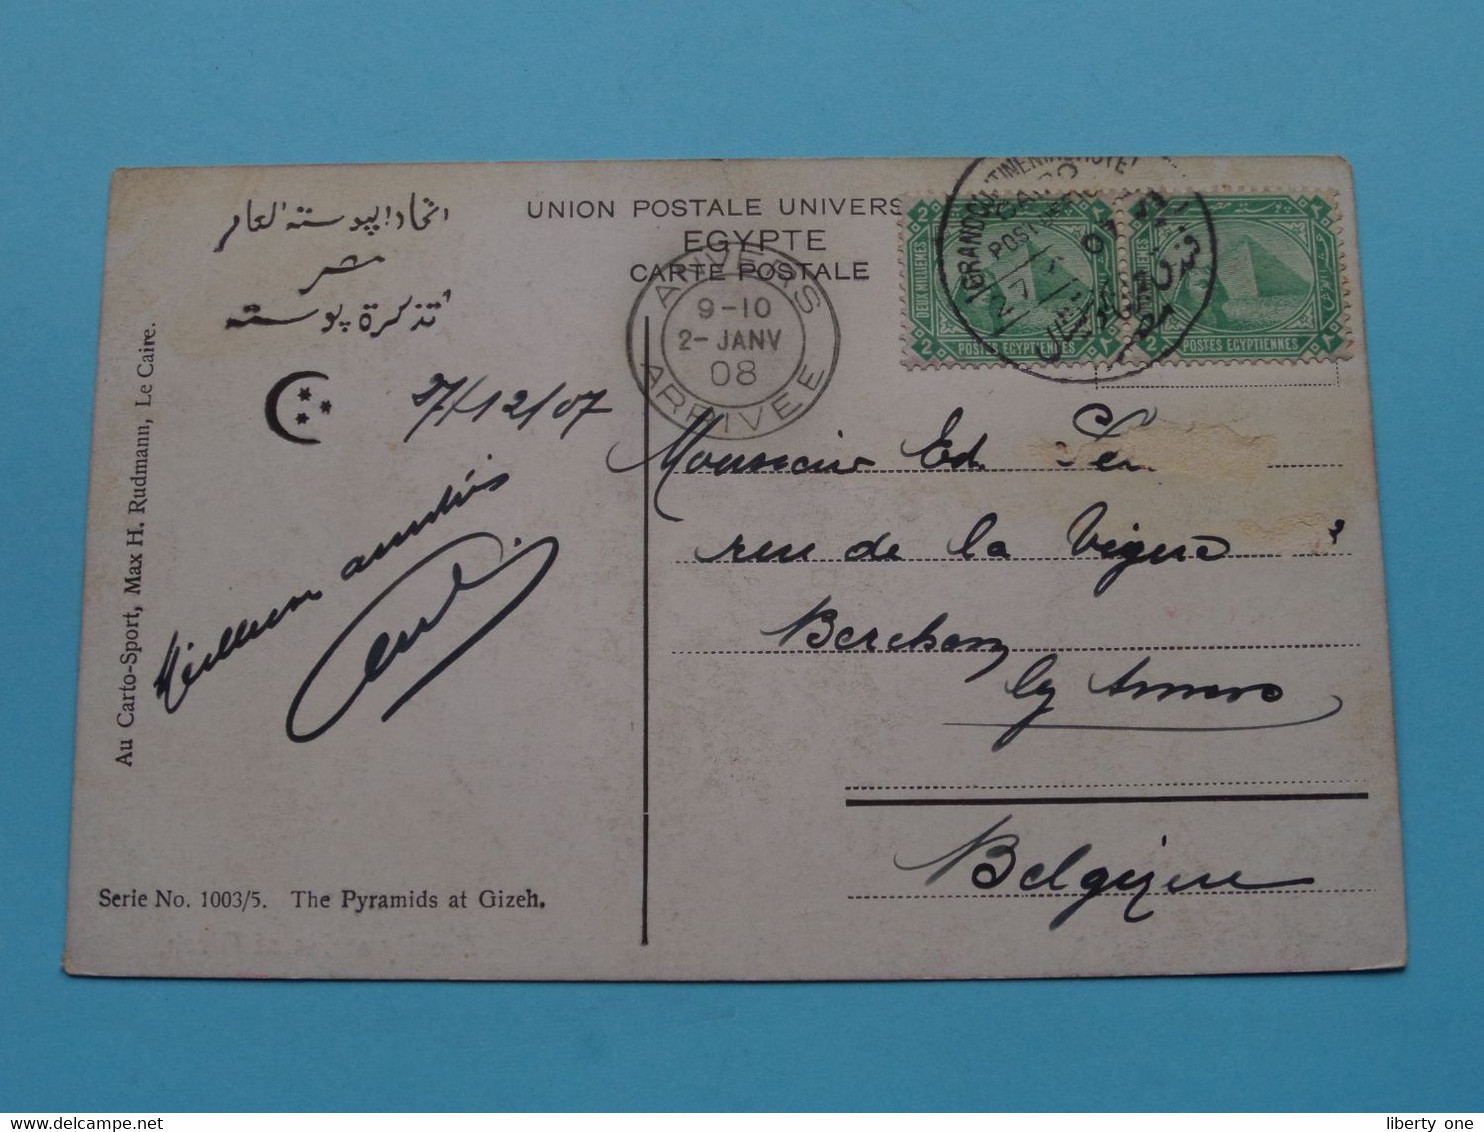 اتحاد البوسته العام
مصر
تذكرة بوسته
UNION POSTALE UNIVERS
EGYPTE
CARTE POSTALE
ANVERS
9-10
2-JANV
08
ARRIVEE
GRAND CONTINENTAL HOTEL
CAIRO
27
07
2 2
DEUX MILLIEMES
POSTES EGYPTIENNES
2 2
POSTES EGYPTIENNES
27/12/07
Meilleures amitiés
Monsieur Ed.
rue de la Vigne
Berchem
lez Anvers
Belgique
Au Carto-Sport, Max H. Rudmann, Le Caire.
Serie No. 1003/5. The Pyramids at Gizeh.
liberty one